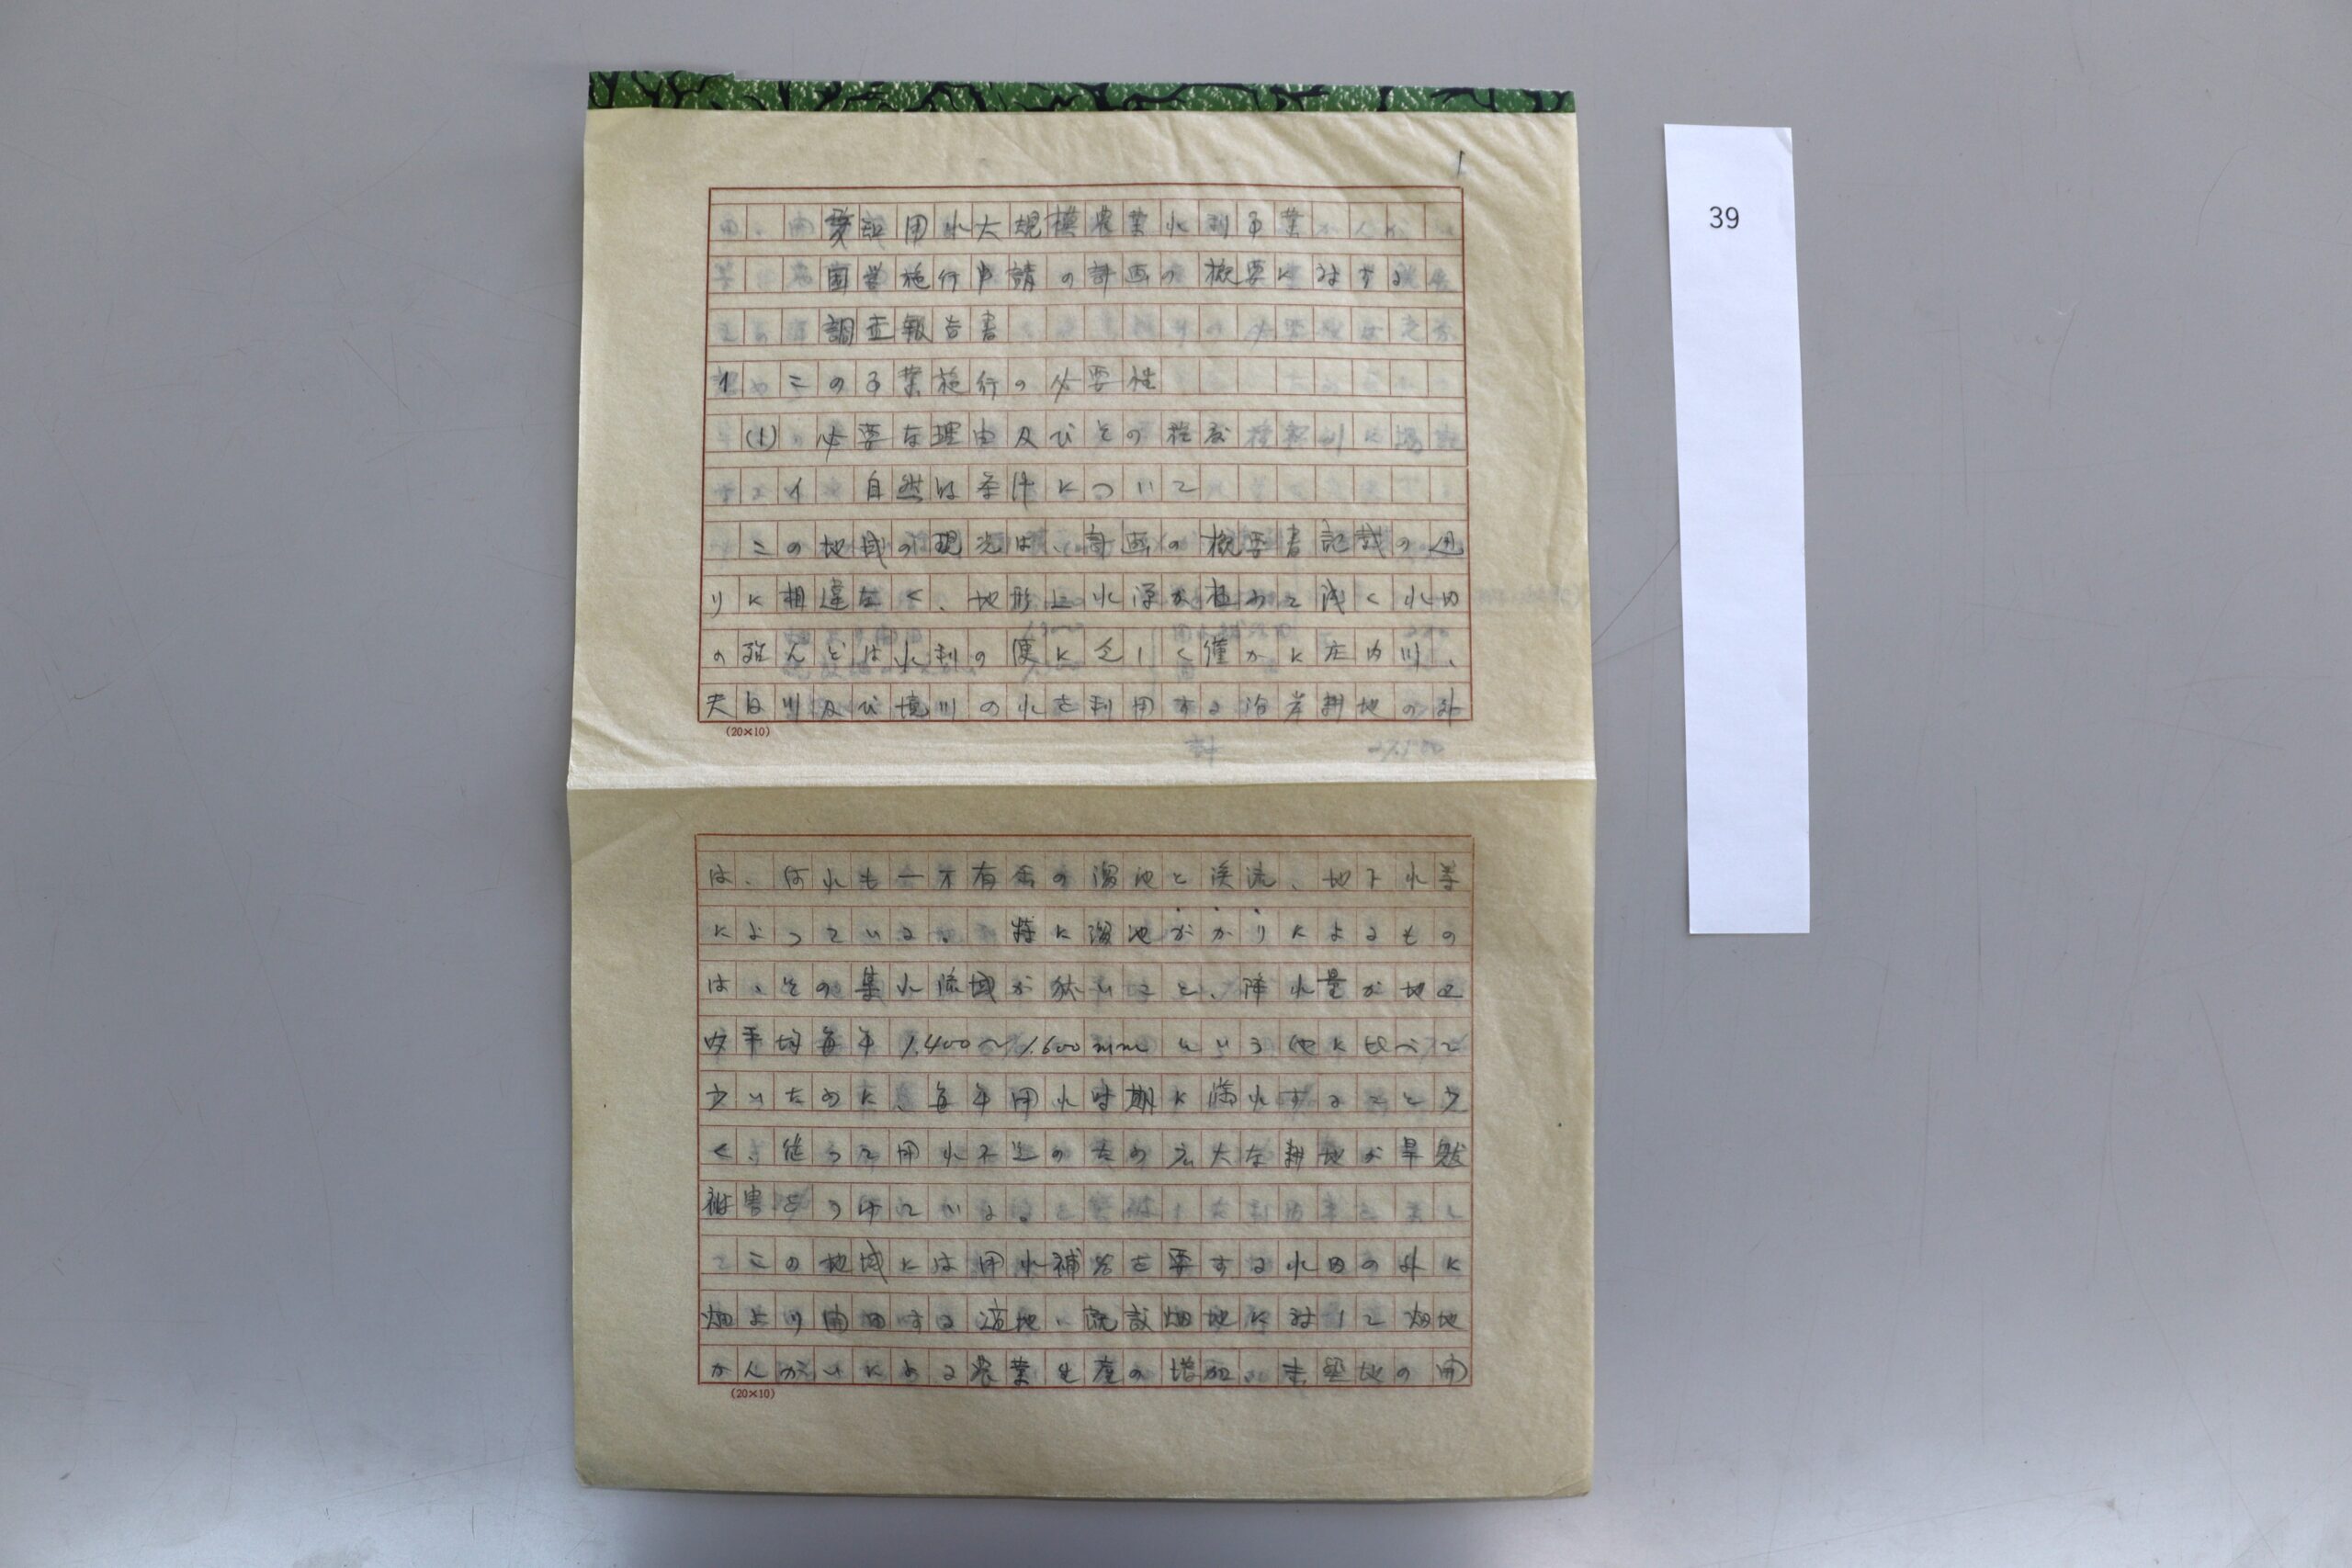 1
愛知用水大規模農業水利事業
国営施行申請の計画の概要に対する
調査報告書
1. この事業施行の必要性
(1) 必要な理由及びその程度
イ 自然的条件について
この地域の現況は、計画の概要書記載の通
りに相違なく、地形上水源が極めて浅く水田
の殆んどは水利の便に乏しく僅かに庄内川、
天白川及び境川の水を利用する沿岸耕地の外
(20×10)
は、何れも一木有余の溜池と渓流、地下水等
によっている。特に溜池がかりによるもの
は、その集水流域が狭いこと、降水量が地区
内平均毎年1,400〜1,600mmという他に比べて
少いために、毎年用水時期に満水すること少
く、従って用水不足のため広大な耕地が旱魃
被害をうけている。
この地域には用水補給を要する水田の外に
畑より開田する適地、既設畑地に対して畑地
かんがいによる農業生産の増加、未墾地の開
(20×10)
39